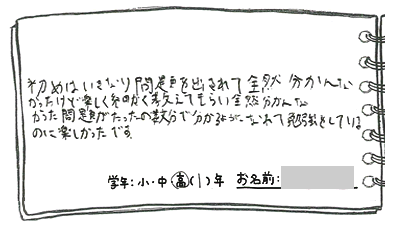 初めはいきなり問題を出されて全然分かんな
かったけど楽しく細かく考えてもらい全然分かんな
かった問題がたったの数分で分かるようになれて勉強をしている
のに楽しかったです。
学年:小・中・高(1)年 お名前: